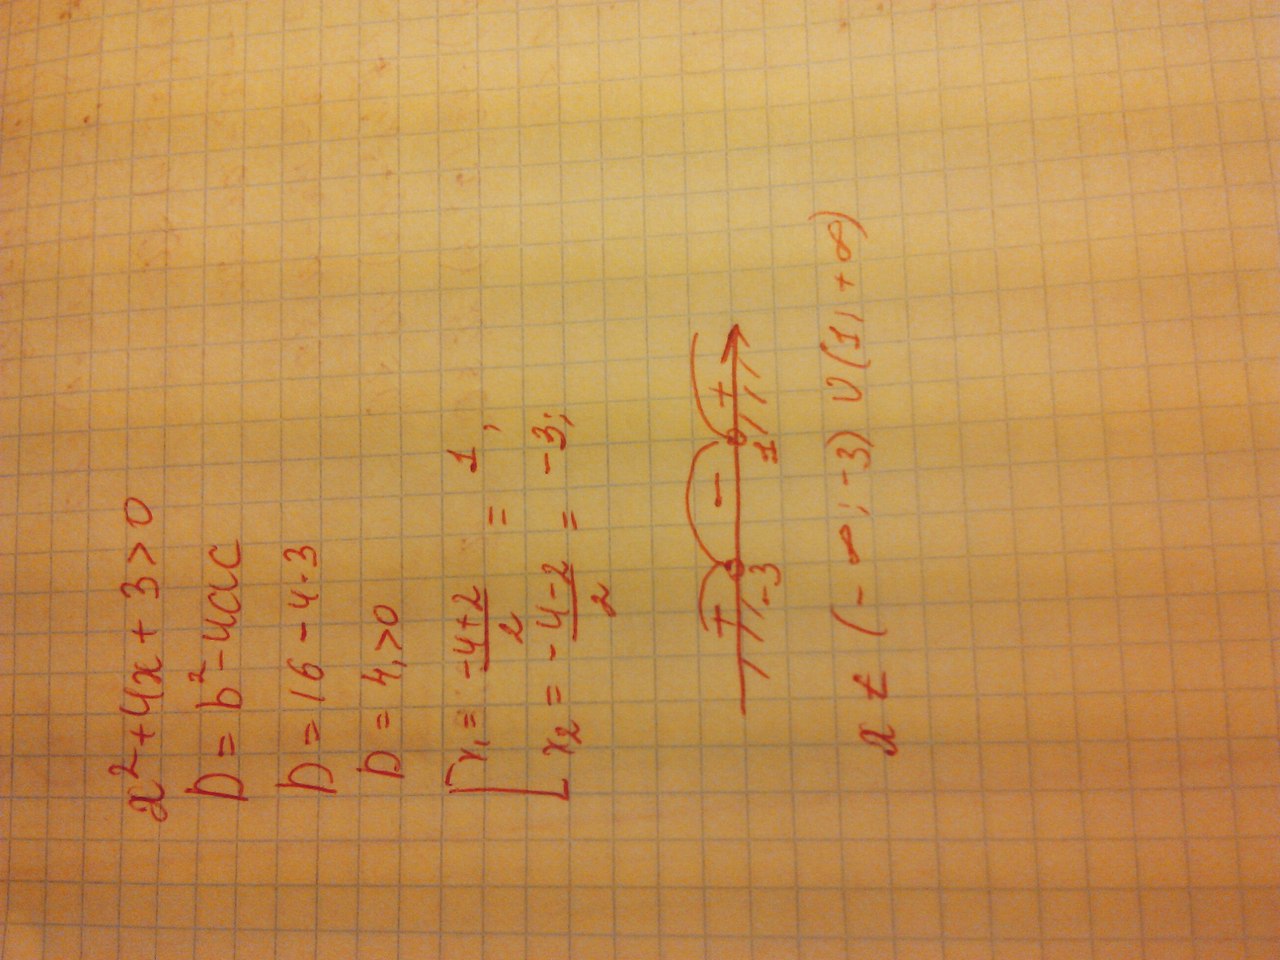 x² + 4x + 3 > 0
D = b² - 4ac
D = 16 - 4·3
D = 4, > 0
[ x₁ = (-4+2)/2 = 1,
[ x₂ = (-4-2)/2 = -3;
+ - +
-3 1
x ∈ (-∞; -3) ∪ (1; +∞)